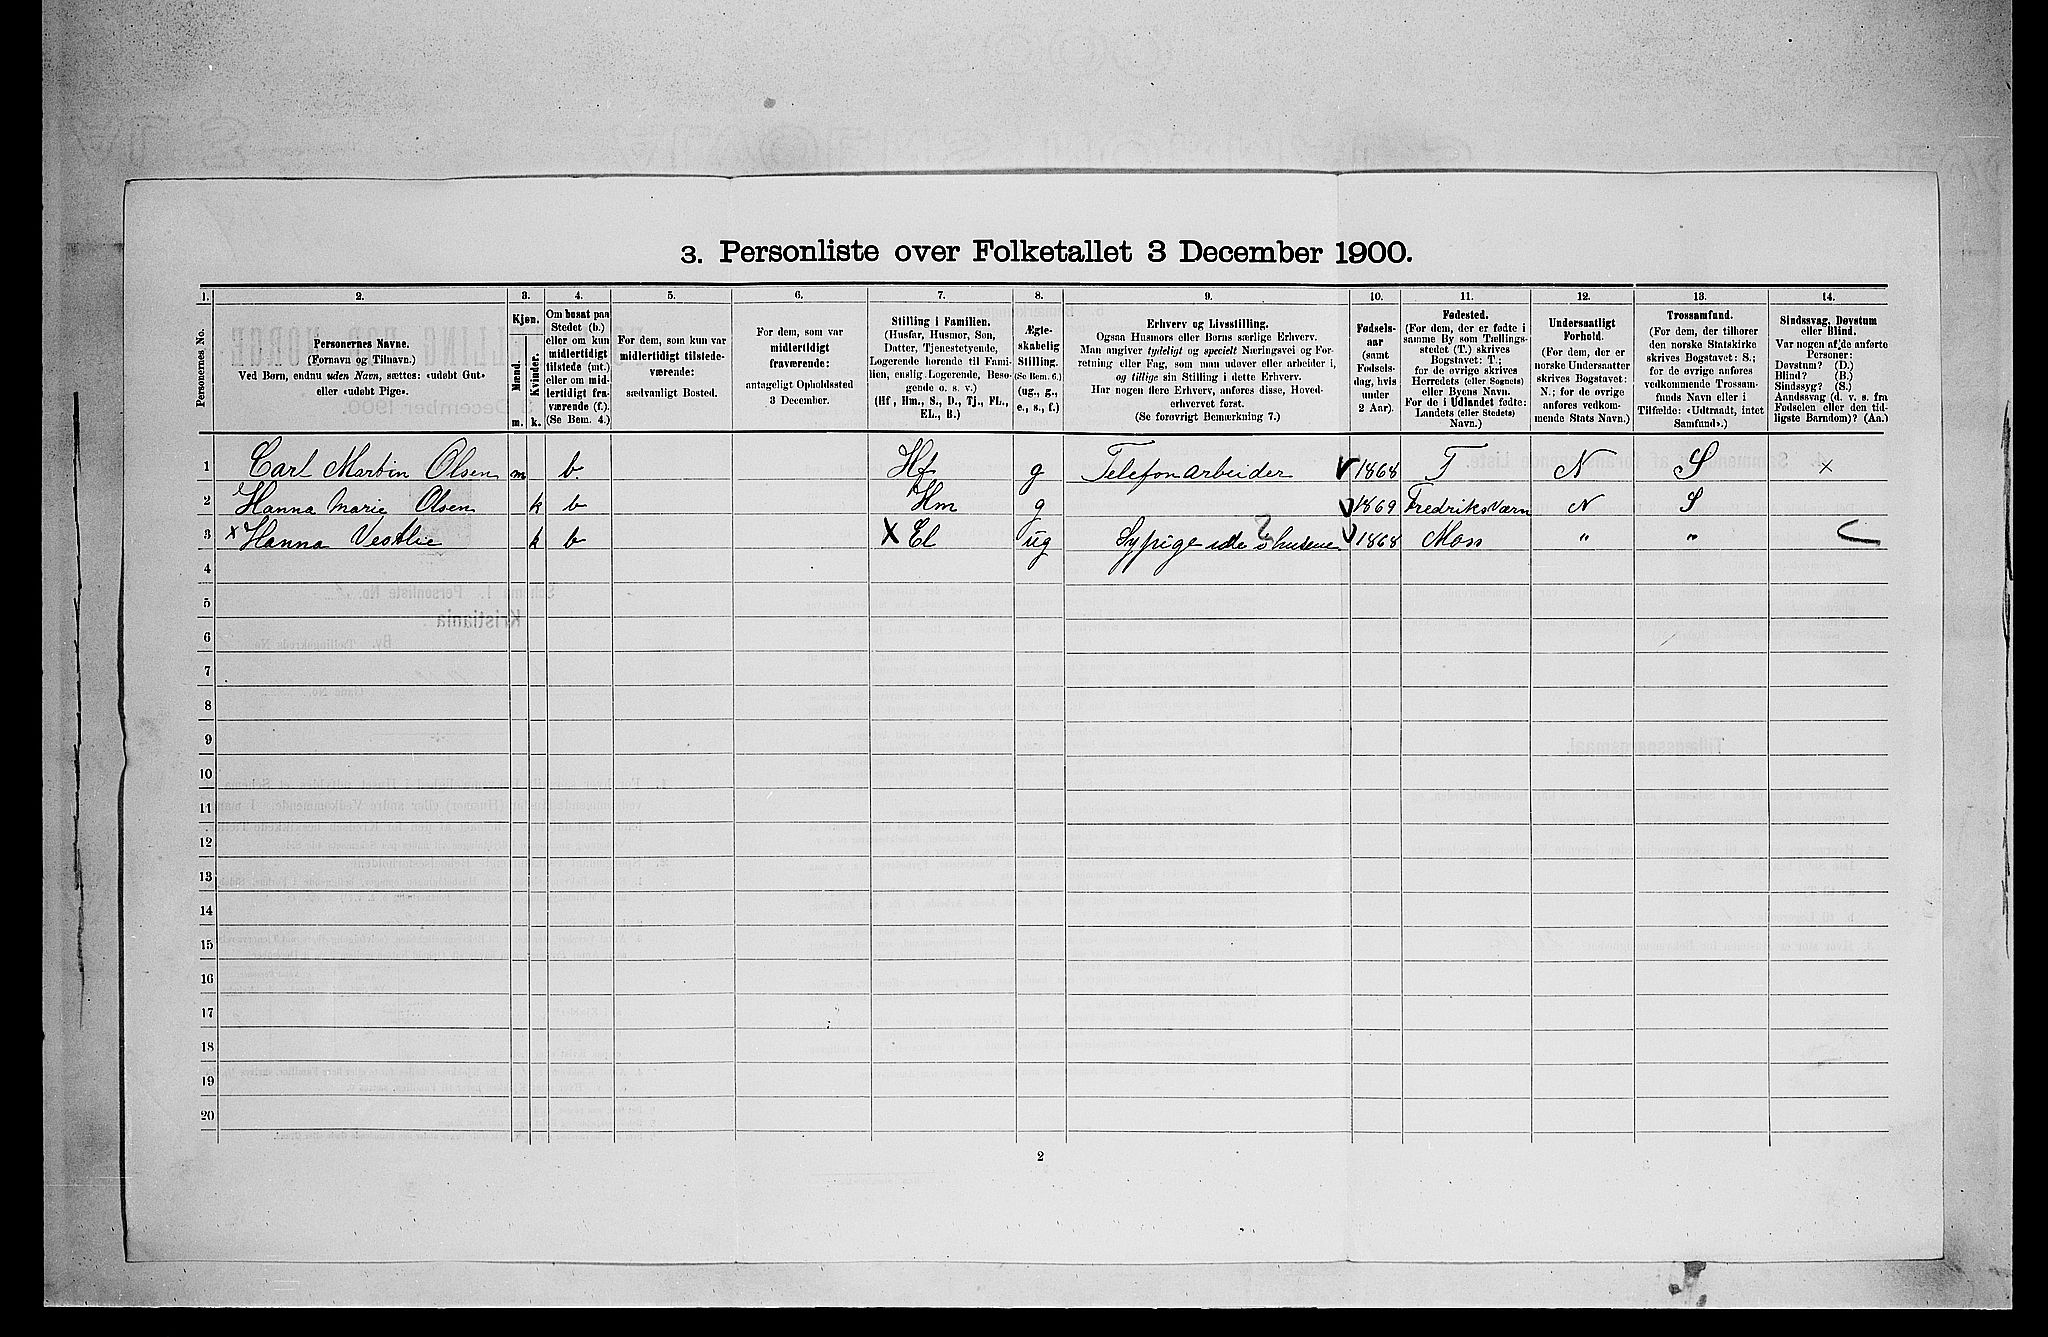 3. Personliste over Folketallet 3 December 1900.
1. 2. 3. 4. 5. 6. 7. 8. 9. 10. 11. 12. 13. 14.
Personernes No.
Personernes Navne.
(Fornavn og Tilnavn.)
Ved Børn, endnu uden Navn, sættes: «udøbt Gut»
eller «udøbt Pige».
Kjøn.
Mænd.
Kvinder.
m. k.
Om bosat paa
Stedet (b.)
eller om kun
midlertidigt
tilstede (mt.)
eller om mid-
lertidigt fra-
værende (f.).
(Se Bem. 4.)
For dem, som kun var
midlertidigt tilstede-
værende:
sædvanligt Bosted.
For dem, som var
midlertidigt
fraværende:
antageligt Opholdssted
3 December.
Stilling i Familien.
(Husfar, Husmor, Søn,
Datter, Tjenestetyende,
Logerende hørende til Fami-
lien, enslig Logerende, Besø-
gende o. s. v.)
(Hf, Hm., S., D., Tj., FL.,
EL., B.)
Ægte-
skabelig
Stilling.
(Se Bem. 6.)
(ug., g.,
e., s., f.)
Erhverv og Livsstilling.
Ogsaa Husmors eller Børns særlige Erhverv.
Man angiver tydeligt og specielt Næringsvei og For-
retning eller Fag, som man udøver eller arbeider i,
og tillige sin Stilling i dette Erhverv.
Har nogen flere Erhverv, anføres disse, Hoved-
erhvervet først.
(Se forøvrigt Bemærkning 7.)
Fødsels-
aar
(samt
Fødsels-
dag, hvis
under
2 Aar).
Fødested.
(For dem, der er fødte i
samme By som Tællings-
stedet (T.) skrives
Bogstavet: T.;
for de øvrige skrives
Herredets (eller Sognets)
eller Byens Navn.
For de i Udlandet fødte:
Landets (eller Stedets)
Navn.)
Undersaatligt
Forhold.
(For dem, der er
norske Undersaatter
skrives Bogstavet:
N.; for de øvrige
anføres vedkom-
mende Stats Navn.)
Trossamfund.
(For dem, der tilhører
den norske Statskirke
skrives Bogstavet: S.;
for de øvrige anføres
vedkommende Trossam-
funds Navn eller i
Tilfælde: «Udtraadt, intet
Samfund».)
Sindssvag, Døvstum
eller Blind.
Var nogen af de anførte
Personer:
Døvstum? (D.)
Blind? (B.)
Sindssyg? (S.)
Aandssvag (d. v. s. fra
Fødselen eller den tid-
ligste Barndom)? (Aa.)
1 Carl Martin Olsen m b. Hf g Telefonarbeider 1868 T N S x
2 Hanna Marie Olsen k b Hm g 1869 Fredriksværn N S
3 x Hanna Vestlie k b X El ug Sypige 1868 Moss " "
4
5
6
7
8
9
10
11
12
13
14
15
16
17
18
19
20
2